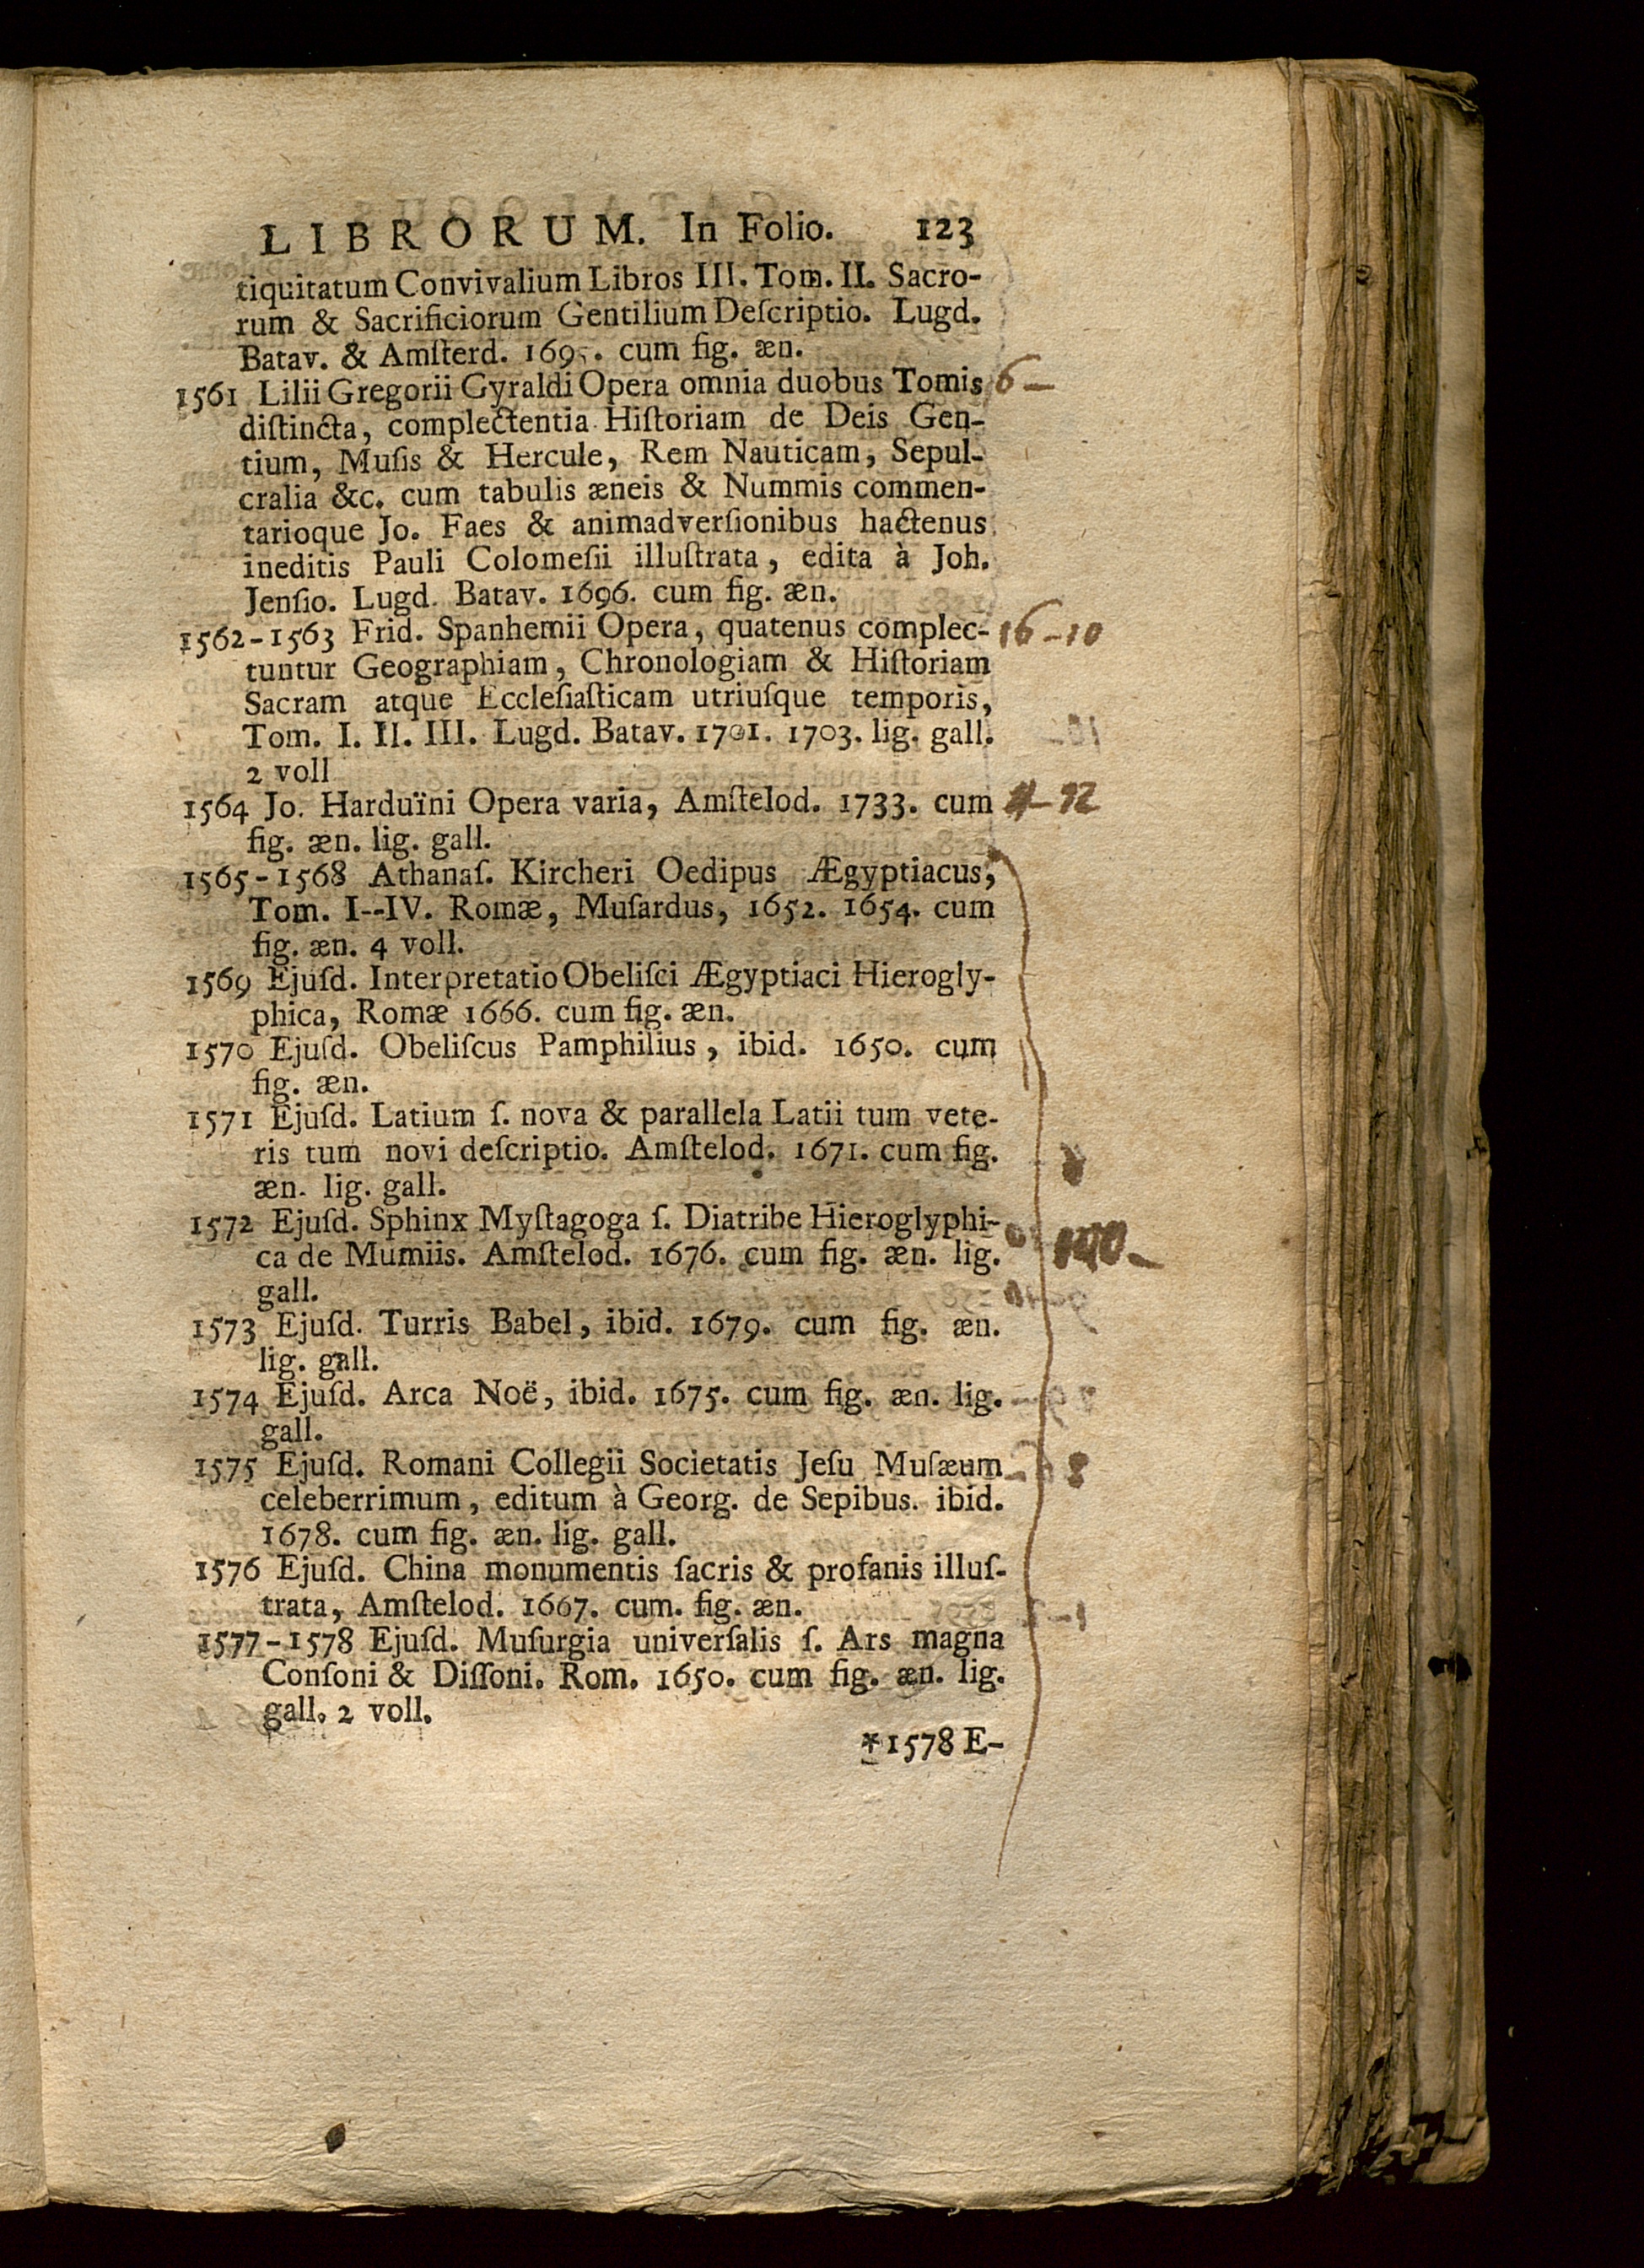 LIBRORUM. In Folio. 123
tiquitatum Convivalium Libros III. Tom. II. Sacro-
rum & Sacrificiorum Gentilium Deſcriptio. Lugd.
Batav. & Amſterd. 1695. cum fig. æn.
1561 Lilii Gregorii Gyraldi Opera omnia duobus Tomis 6 –
diſtincta, complectentia Hiſtoriam de Deis Gen-
tium, Muſis & Hercule, Rem Nauticam, Sepul-
cralia &c. cum tabulis æneis & Nummis commen-
tarioque Jo. Faes & animadverſionibus hactenus
ineditis Pauli Colomeſii illuſtrata, edita à Joh.
Jenſio. Lugd. Batav. 1696. cum fig. æn.
1562-1563 Frid. Spanhemii Opera, quatenus complec- 16 – 10
tuntur Geographiam, Chronologiam & Hiſtoriam
Sacram atque Eccleſiaſticam utriuſque temporis,
Tom. I. II. III. Lugd. Batav. 1701. 1703. lig. gall.
2 voll
1564 Jo. Harduïni Opera varia, Amſtelod. 1733. cum
fig. æn. lig. gall.
1565-1568 Athanaſ. Kircheri Oedipus Ægyptiacus,
Tom. I--IV. Romæ, Muſardus, 1652. 1654. cum
fig. æn. 4 voll.
1569 Ejuſd. Interpretatio Obeliſci Ægyptiaci Hierogly-
phica, Romæ 1666. cum fig. æn.
1570 Ejuſd. Obeliſcus Pamphilius, ibid. 1650. cum
fig. æn.
1571 Ejuſd. Latium ſ. nova & parallela Latii tum vete-
ris tum novi deſcriptio. Amſtelod. 1671. cum fig.
æn. lig. gall.
1572 Ejuſd. Sphinx Myſtagoga ſ. Diatribe Hieroglyphi-
ca de Mumiis. Amſtelod. 1676. cum fig. æn. lig.
gall.
1573 Ejuſd. Turris Babel, ibid. 1679. cum fig. æn.
lig. gall.
1574 Ejuſd. Arca Noë, ibid. 1675. cum fig. æn. lig.
gall.
1575 Ejuſd. Romani Collegii Societatis Jeſu Muſæum
celeberrimum, editum à Georg. de Sepibus. ibid.
1678. cum fig. æn. lig. gall.
1576 Ejuſd. China monumentis ſacris & profanis illuſ-
trata, Amſtelod. 1667. cum. fig. æn.
1577-1578 Ejuſd. Muſurgia univerſalis ſ. Ars magna
Conſoni & Diſſoni. Rom. 1650. cum fig. æn. lig.
gall. 2 voll.
*1578 E-